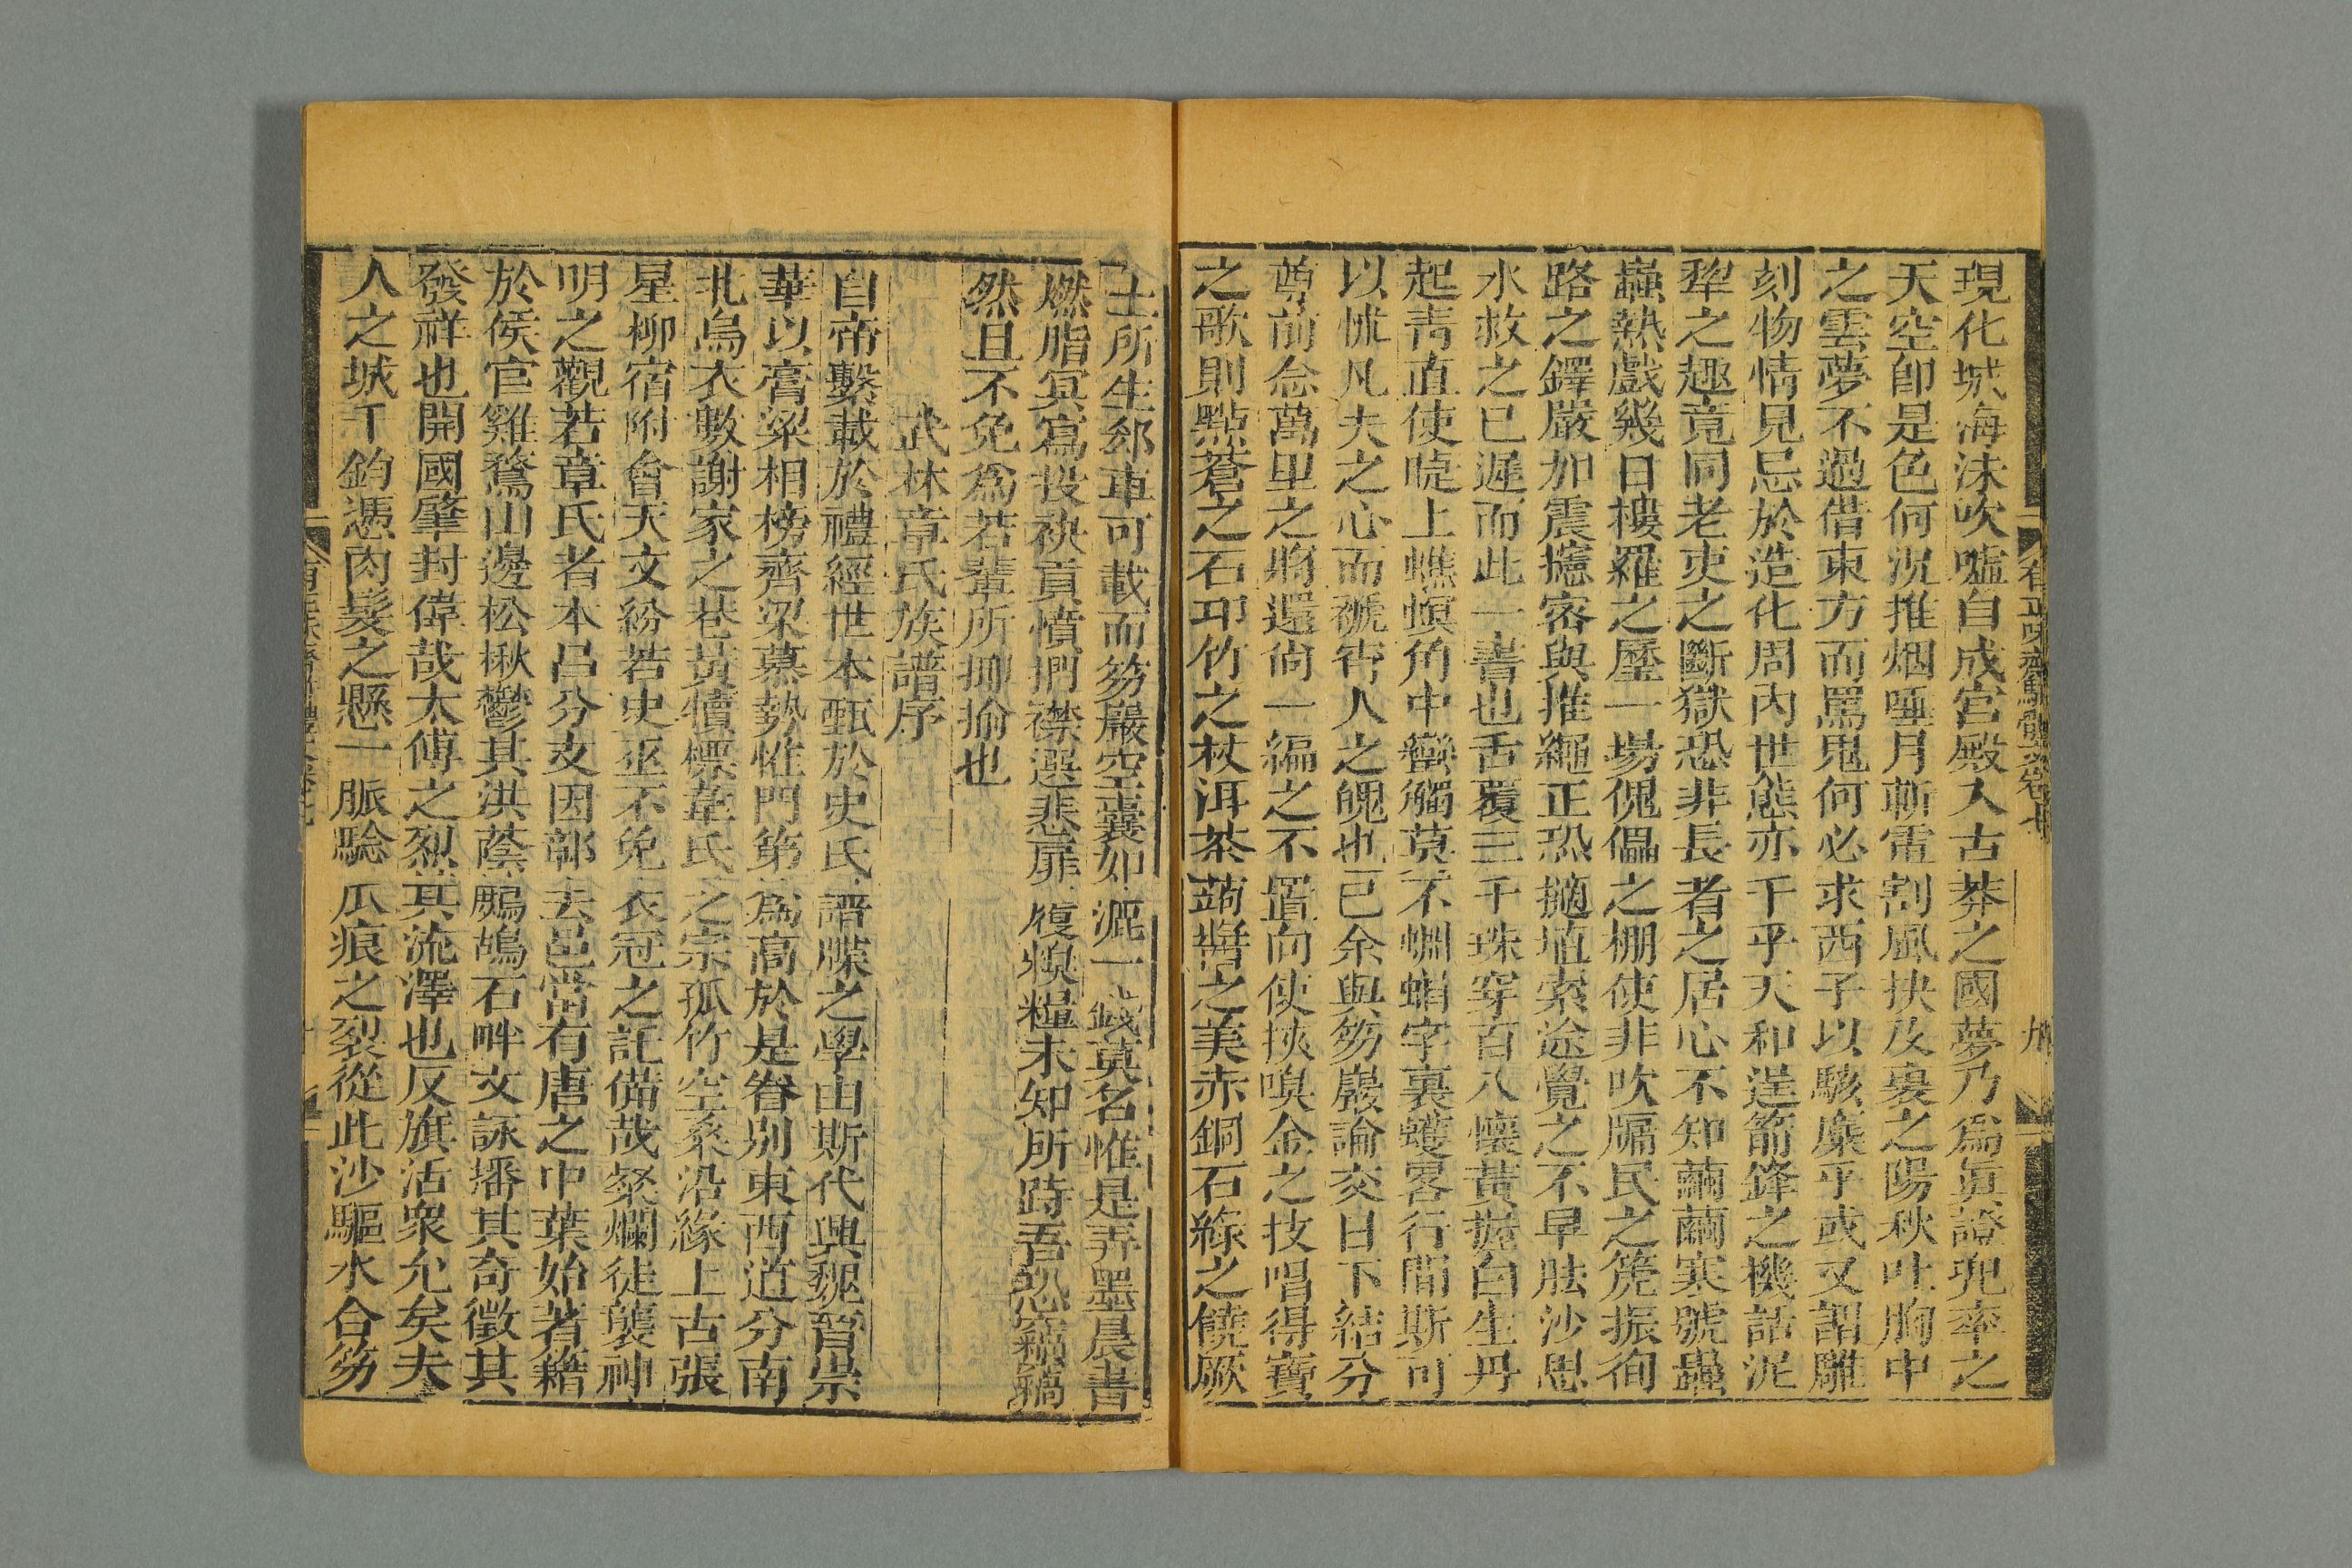 有正味齋駢體文卷七
現化城海沫吹噓自成宮殿入古莽之國夢乃爲眞證兜率之
天空卽是色何況推烟唾月斬雷割風抉及裏之陽秋吐胸中
之雲夢不過借東方而罵鬼何必求西子以駭麋乎或又謂雕
刻物情見忌於造化周內世態亦干乎天和逞箭鋒之機話泥
犂之趣竟同老吏之斷獄恐非長者之居心不知繭繭寒號蟲
蟲熱戲幾日樓羅之歷一場傀儡之棚使非吹牖民之箎振徇
路之鐸嚴如震撼密與推繩正恐擿埴索途覺之不早胠沙思
水救之已遲而此一書也舌覆三千珠穿百八懷黃握白生丹
起靑直使睫上蟭螟角中蠻觸莫不蜩蛸字裏蠖畧行間斯可
以怵凡夫之心而褫哲人之魄也已余與笏巖論交日下結分
尊前念萬里之將還尙一編之不置向使挾嗅金之技唱得寶
之歌則點蒼之石邛竹之杖洱茶蒟醬之美赤銅石綠之饒厥
土所生郄車可載而笏巖空囊如㴑一錢莫名惟是弄墨晨書
燃脂冥寫投袂賁憤捫襟選悲扉㢆煥糧未知所時吾恐窮竊
然且不免爲若輩所揶揄也
武林章氏族譜序
自帝繫載於禮經世本甄於史氏譜牒之學由斯代興魏晉崇
華以膏粱相榜齊梁慕勢惟門第爲高於是眷別東西道分南
北烏衣數謝家之巷黃犢標韋氏之宗孤竹空桑沿緣上古張
星柳宿附會天文紛若史巫不免衣冠之託備哉粲爛徒襲神
明之觀若章氏者本呂分支因鄣去邑當有唐之中葉始著籍
於侯官雞鶩山邊松楸鬱其洪蔭鷓鴣石畔文詠播其奇徵其
發祥也開國肇封偉哉太傅之烈其流澤也反旗活衆允矣夫
人之城千鈞憑肉髮之懸一脈驗瓜痕之裂從此沙驅水合笏